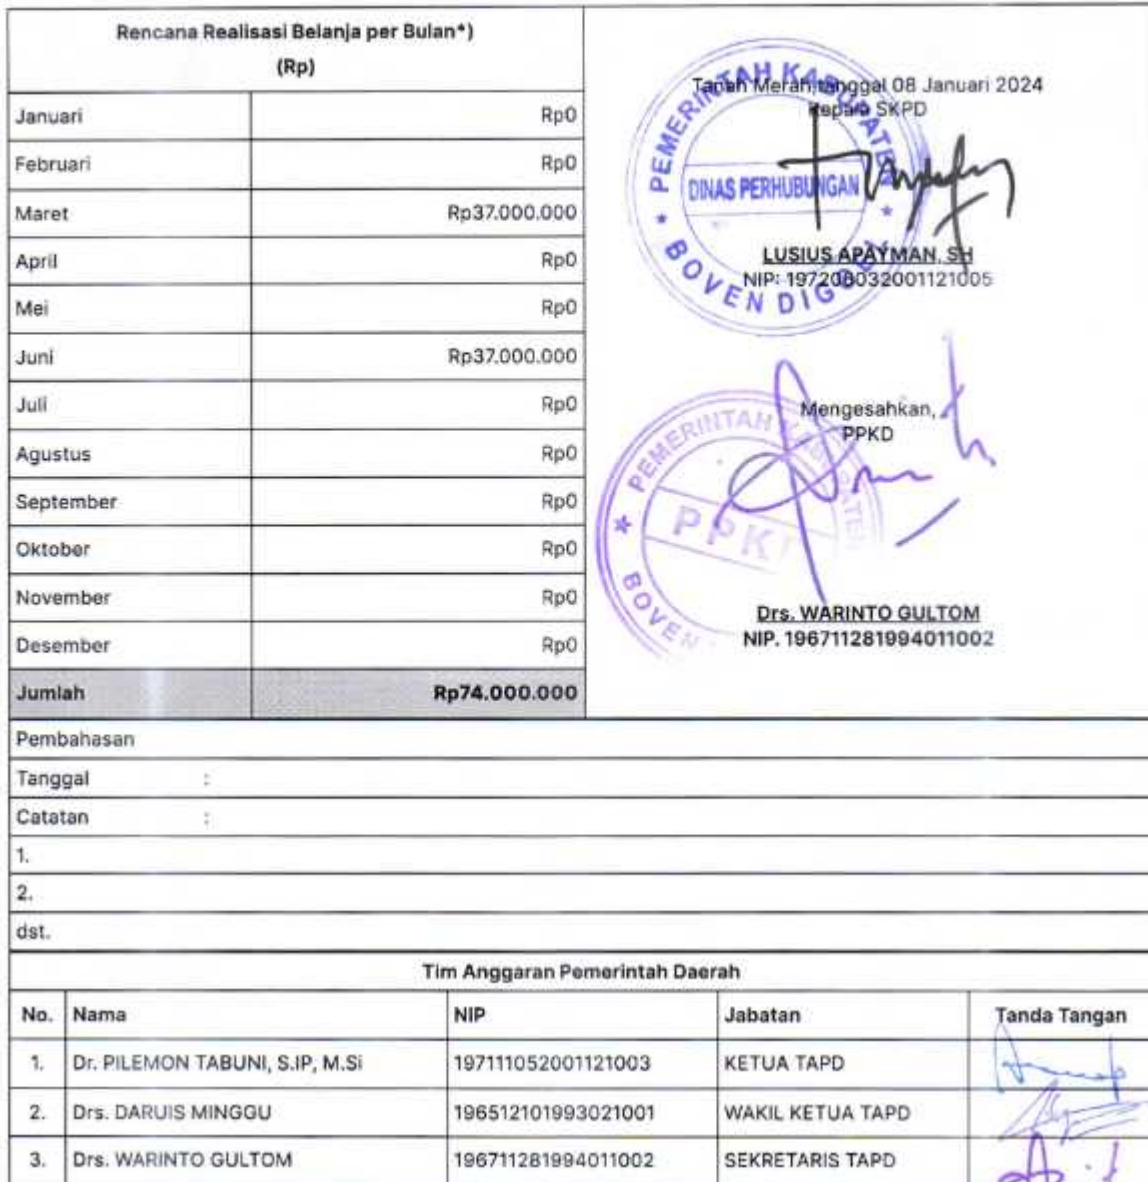 Rencana Realisasi Belanja per Bulan*)
(Rp)
Januari Rp0
Februari Rp0
Maret Rp37.000.000
April Rp0
Mei Rp0
Juni Rp37.000.000
Juli Rp0
Agustus Rp0
September Rp0
Oktober Rp0
November Rp0
Desember Rp0
Jumlah Rp74.000.000
Tanah Merah,tanggal 08 Januari 2024
Kepala SKPD
PEMERINTAH KABUPATEN
DINAS PERHUBUNGAN
BOVEN DIGOEL
LUSIUS APAYMAN, SH
NIP: 197206032001121005
Mengesahkan,
PPKD
PEMERINTAH KABUPATEN
PPKD
BOVEN
Drs. WARINTO GULTOM
NIP. 196711281994011002
Pembahasan
Tanggal :
Catatan :
1.
2.
dst.
Tim Anggaran Pemerintah Daerah
No. Nama NIP Jabatan Tanda Tangan
1. Dr. PILEMON TABUNI, S.IP, M.Si 197111052001121003 KETUA TAPD
2. Drs. DARUIS MINGGU 196512101993021001 WAKIL KETUA TAPD
3. Drs. WARINTO GULTOM 196711281994011002 SEKRETARIS TAPD